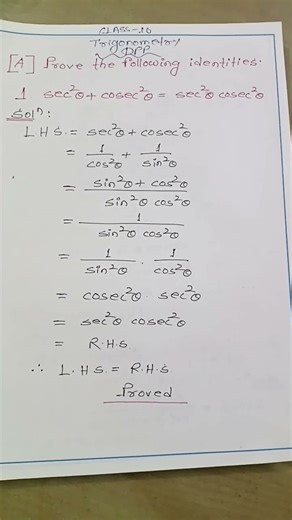 CLASS-10
Trigonometry
DPP
[A] Prove the following identities.
1 sec²θ + cosec²θ = sec²θ cosec²θ
Solⁿ:
L H S. = sec²θ + cosec²θ
= 1/cos²θ + 1/sin²θ
= (sin²θ + cos²θ)/(sin²θ cos²θ)
= 1/(sin²θ cos²θ)
= 1/sin²θ · 1/cos²θ
= cosec²θ · sec²θ
= sec²θ cosec²θ
= R.H.S.
∴ L.H.S. = R.H.S.
Proved